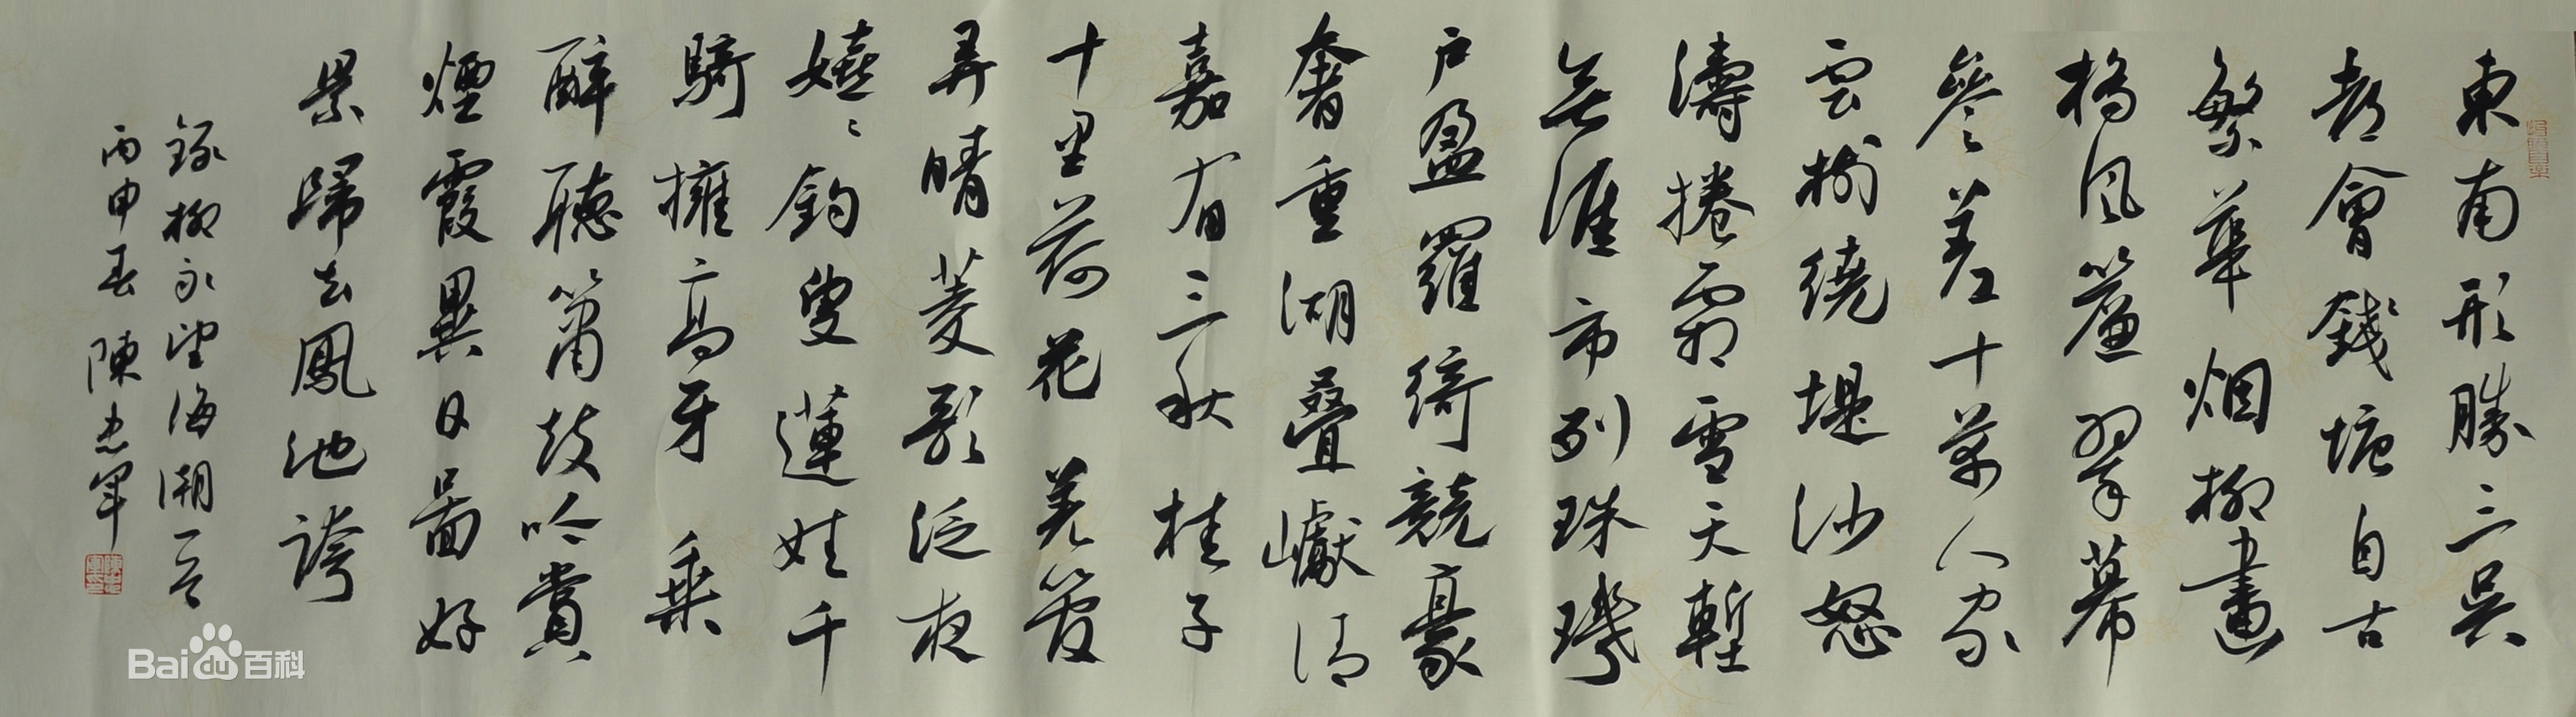 東南形勝三吳
都會錢塘自古
繁華烟柳畫
橋風簾翠幕
參差十萬人家
雲樹繞堤沙怒
濤捲霜雪天塹
無涯市列珠璣
户盈羅綺競豪
奢重湖疊巘清
嘉有三秋桂子
十里荷花羌管
弄晴菱歌泛夜
嬉嬉釣叟蓮娃千
騎擁高牙乘
醉聽簫鼓吟賞
煙霞異日圖好
景歸去鳳池誇
錄柳永望海潮一首
丙申春陳忠軍
Baidu百科